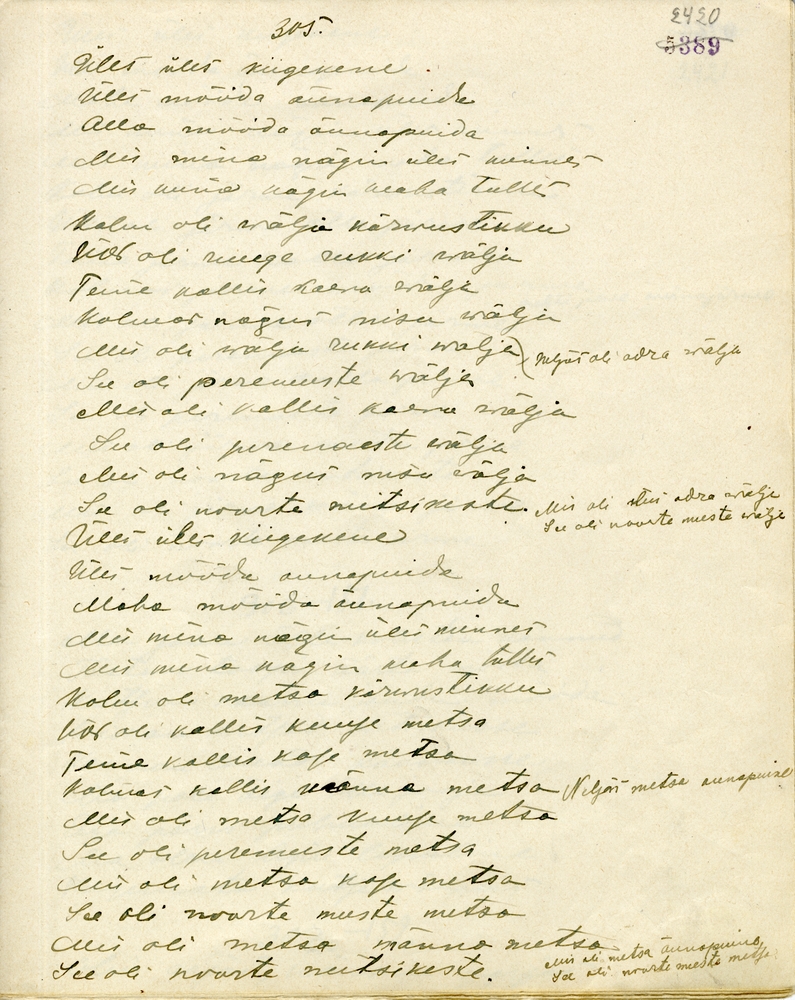 305.
2420
5389
Üles üles kiigekene.
Üles mööda õunapuida
Alla mööda õunapuida
Mis mina nägin üles minnes
Mis mina nägin maha tulles
Kolm oli wälja kärwustikku
Üks oli ruuge rukki wälja
Teine kallis kaera wälja
Kolmas nägus nisu wälja
Mis oli wälja rukki wälja
Neljas oli odra wälja
See oli peremeeste wälja
Mis oli kallis kaera wälja
See oli perenaeste wälja
Mis oli nägus nisu wälja
See oli noorte neitsikeste.
Mis oli odra wälja
See oli noorte meeste wälja
Üles üles kiigekene
Üles mööda õunapuida
Maha mööda õunapuida
Mis mina nägin üles minnes
Mis mina nägin maha tulles
Kolm oli metsa kärwustikku
Üks oli kallis kuuse metsa
Teine kallis kase metsa
Kolmas kallis männa metsa
Neljas metsa õunapuine
Mis oli metsa kuuse metsa
See oli peremeeste metsa
Mis oli metsa kase metsa
See oli noorte meeste metsa
Mis oli metsa männa metsa
See oli noorte neitsikeste.
Mis oli metsa õunapuine
See oli noorte meeste metsa